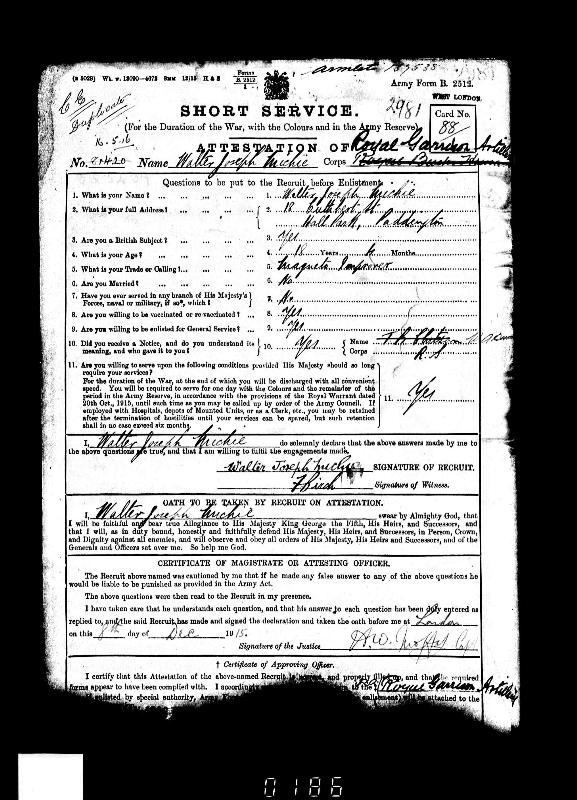 (B 5029) Wt. w. 13090—4075 500M 12/15 H & S Forms B. 2512 1 Armlet 139538
Army Form B. 2512.
2981 WEST LONDON.
Duplicate
16.5.16
SHORT SERVICE.
Card No. 88
(For the Duration of the War, with the Colours and in the Army Reserve).
ATTESTATION OF Royal Garrison Artillery
No. 81420 Name Walter Joseph Michie Corps
Questions to be put to the Recruit before Enlistment.
1. What is your Name? ... 1. Walter Joseph Michie
2. What is your full Address? ... 2. 18 St
Hall Park, Paddington
3. Are you a British Subject? ... 3. Yes
4. What is your Age? ... 4. 18 Years Months.
5. What is your Trade or Calling? ... 5. Magneto Improver
6. Are you Married? ... 6. No
7. Have you ever served in any branch of His Majesty's Forces, naval or military, if so*, which? 7. No
8. Are you willing to be vaccinated or re-vaccinated? ... 8. Yes
9. Are you willing to be enlisted for General Service? ... 9. Yes
10. Did you receive a Notice, and do you understand its meaning, and who gave it to you? 10. Yes Name
Corps
11. Are you willing to serve upon the following conditions provided His Majesty should so long
require your services?
For the duration of the War, at the end of which you will be discharged with all convenient
speed. You will be required to serve for one day with the Colours and the remainder of the
period in the Army Reserve, in accordance with the provisions of the Royal Warrant dated
20th Oct., 1915, until such time as you may be called up by order of the Army Council. If
employed with Hospitals, depots of Mounted Units, or as a Clerk, etc., you may be retained
after the termination of hostilities until your services can be spared, but such retention
shall in no case exceed six months.
11. Yes
I, Walter Joseph Michie do solemnly declare that the above answers made by me to
the above questions are true, and that I am willing to fulfil the engagements made.
Walter Joseph Michie SIGNATURE OF RECRUIT.
Signature of Witness.
OATH TO BE TAKEN BY RECRUIT ON ATTESTATION.
I, Walter Joseph Michie swear by Almighty God, that
I will be faithful and bear true Allegiance to His Majesty King George the Fifth, His Heirs, and Successors, and
that I will, as in duty bound, honestly and faithfully defend His Majesty, His Heirs, and Successors, in Person, Crown,
and Dignity against all enemies, and will observe and obey all orders of His Majesty, His Heirs and Successors, and of the
Generals and Officers set over me. So help me God.
CERTIFICATE OF MAGISTRATE OR ATTESTING OFFICER.
The Recruit above named was cautioned by me that if he made any false answer to any of the above questions he
would be liable to be punished as provided in the Army Act.
The above questions were then read to the Recruit in my presence.
I have taken care that he understands each question, and that his answer to each question has been duly entered as
replied to, and the said Recruit has made and signed the declaration and taken the oath before me at London
on this 8th day of Dec 1915.
Signature of the Justice
† Certificate of Approving Officer.
I certify that this Attestation of the above-named Recruit is correct, and properly filled up, and that the required
forms appear to have been complied with. I accordingly to the Royal Garrison Artillery
If enlisted by special authority, Army enlistment) will be attached to the
0186